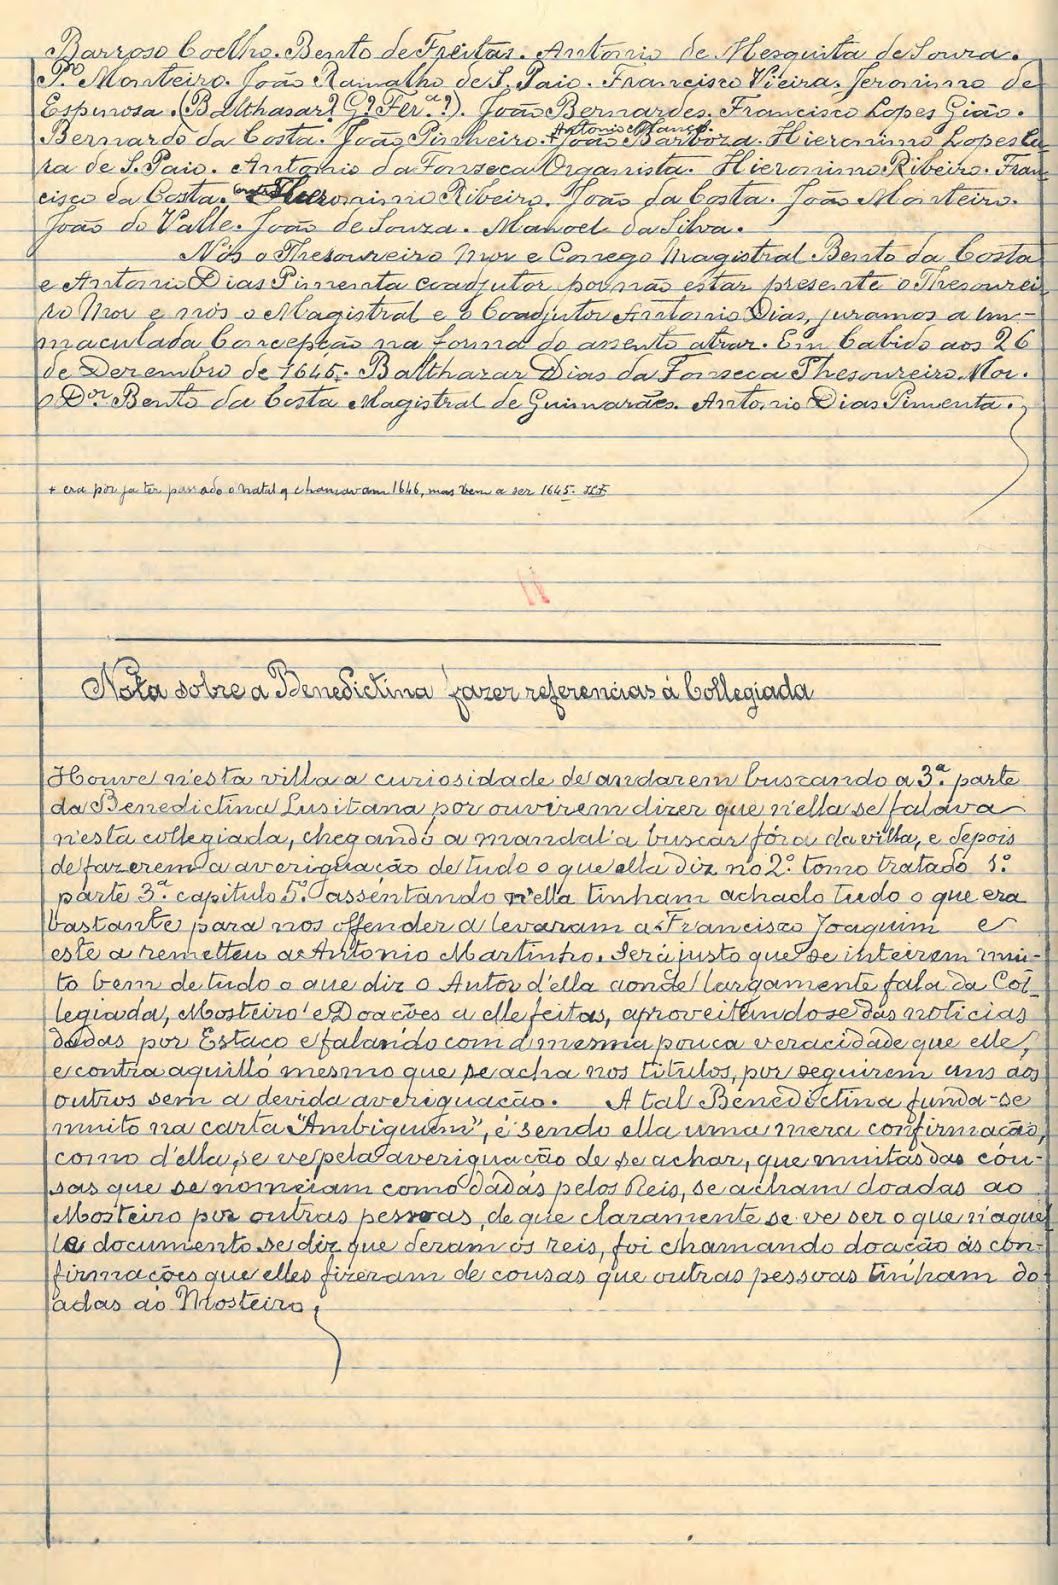 Barroso Coelho. Bento de Freitas. Antonio de Mesquita de Souza.
P.º Monteiro. João Ramalho de S. Paio. Francisco Vieira. Jeronimo de
Espinosa. (Balthasar? G? Fer.ª?). João Bernardes. Francisco Lopes Gião.
Antonio Manoel.
Bernardo da Costa. João Pinheiro. + João Barboza. Hieronimo Lopes La-
ra de S. Paio. Antonio da Fonseca Organista. Hieronimo Ribeiro. Fran-
cisco da Costa. Hieronimo Ribeiro. João da Costa. João Monteiro.
João do Valle. João de Souza. Manoel da Silva.
Nós o Thesoureiro Mor e Conego Magistral Bento da Costa
e Antonio Dias Pimenta coadjutor por não estar presente o Thesourei-
ro Mor e nós o Magistral e o Coadjutor Antonio Dias, juramos a Im-
maculada Concepção na forma do assento atraz. Em Cabido aos 26
de Dezembro de 1645. Balthazar Dias da Fonseca Thesoureiro Mor.
O D.or Bento da Costa Magistral de Guimarães. Antonio Dias Pimenta.
+ era por ja ter passado o natal q chamavam 1646, mas vem a ser 1645.
Nota sobre a Benedictina fazer referencias á Collegiada
Houve n'esta villa a curiosidade de andarem buscando a 3.ª parte
da Benedictina Lusitana por ouvirem dizer que n'ella se falava
n'esta collegiada, chegando a mandal'a buscar fóra da villa, e depois
de fazerem a averiguação de tudo o que ella diz no 2.º tomo tratado 1.º
parte 3.ª capitulo 5.º assentando n'ella tinham achado tudo o que era
bastante para nos offender a levaram a Francisco Joaquim e
este a remetteu a Antonio Martinho. Será justo que se inteirem mui-
to bem de tudo o que diz o Autor d'ella aonde largamente fala da Col-
legiada, Mosteiro e Doações a elle feitas, aproveitando se das noticias
dadas por Estaço e falando com a mesma pouca veracidade que elle,
e contra aquillo mesmo que se acha nos titulos, por seguirem uns aos
outros sem a devida averiguação. A tal Benedictina funda-se
muito na carta "Ambiguum", e sendo ella uma mera confirmação,
como d'ella se ve pela averiguação de se achar, que muitas das cou-
sas que se nomeiam como dadas pelos Reis, se acham doadas ao
Mosteiro por outras pessoas, de que claramente se ve ser o que n'aquel-
le documento se diz que deram os reis, foi chamando doação ás con-
firmações que elles fizeram de cousas que outras pessoas tinham do-
adas ao Mosteiro.